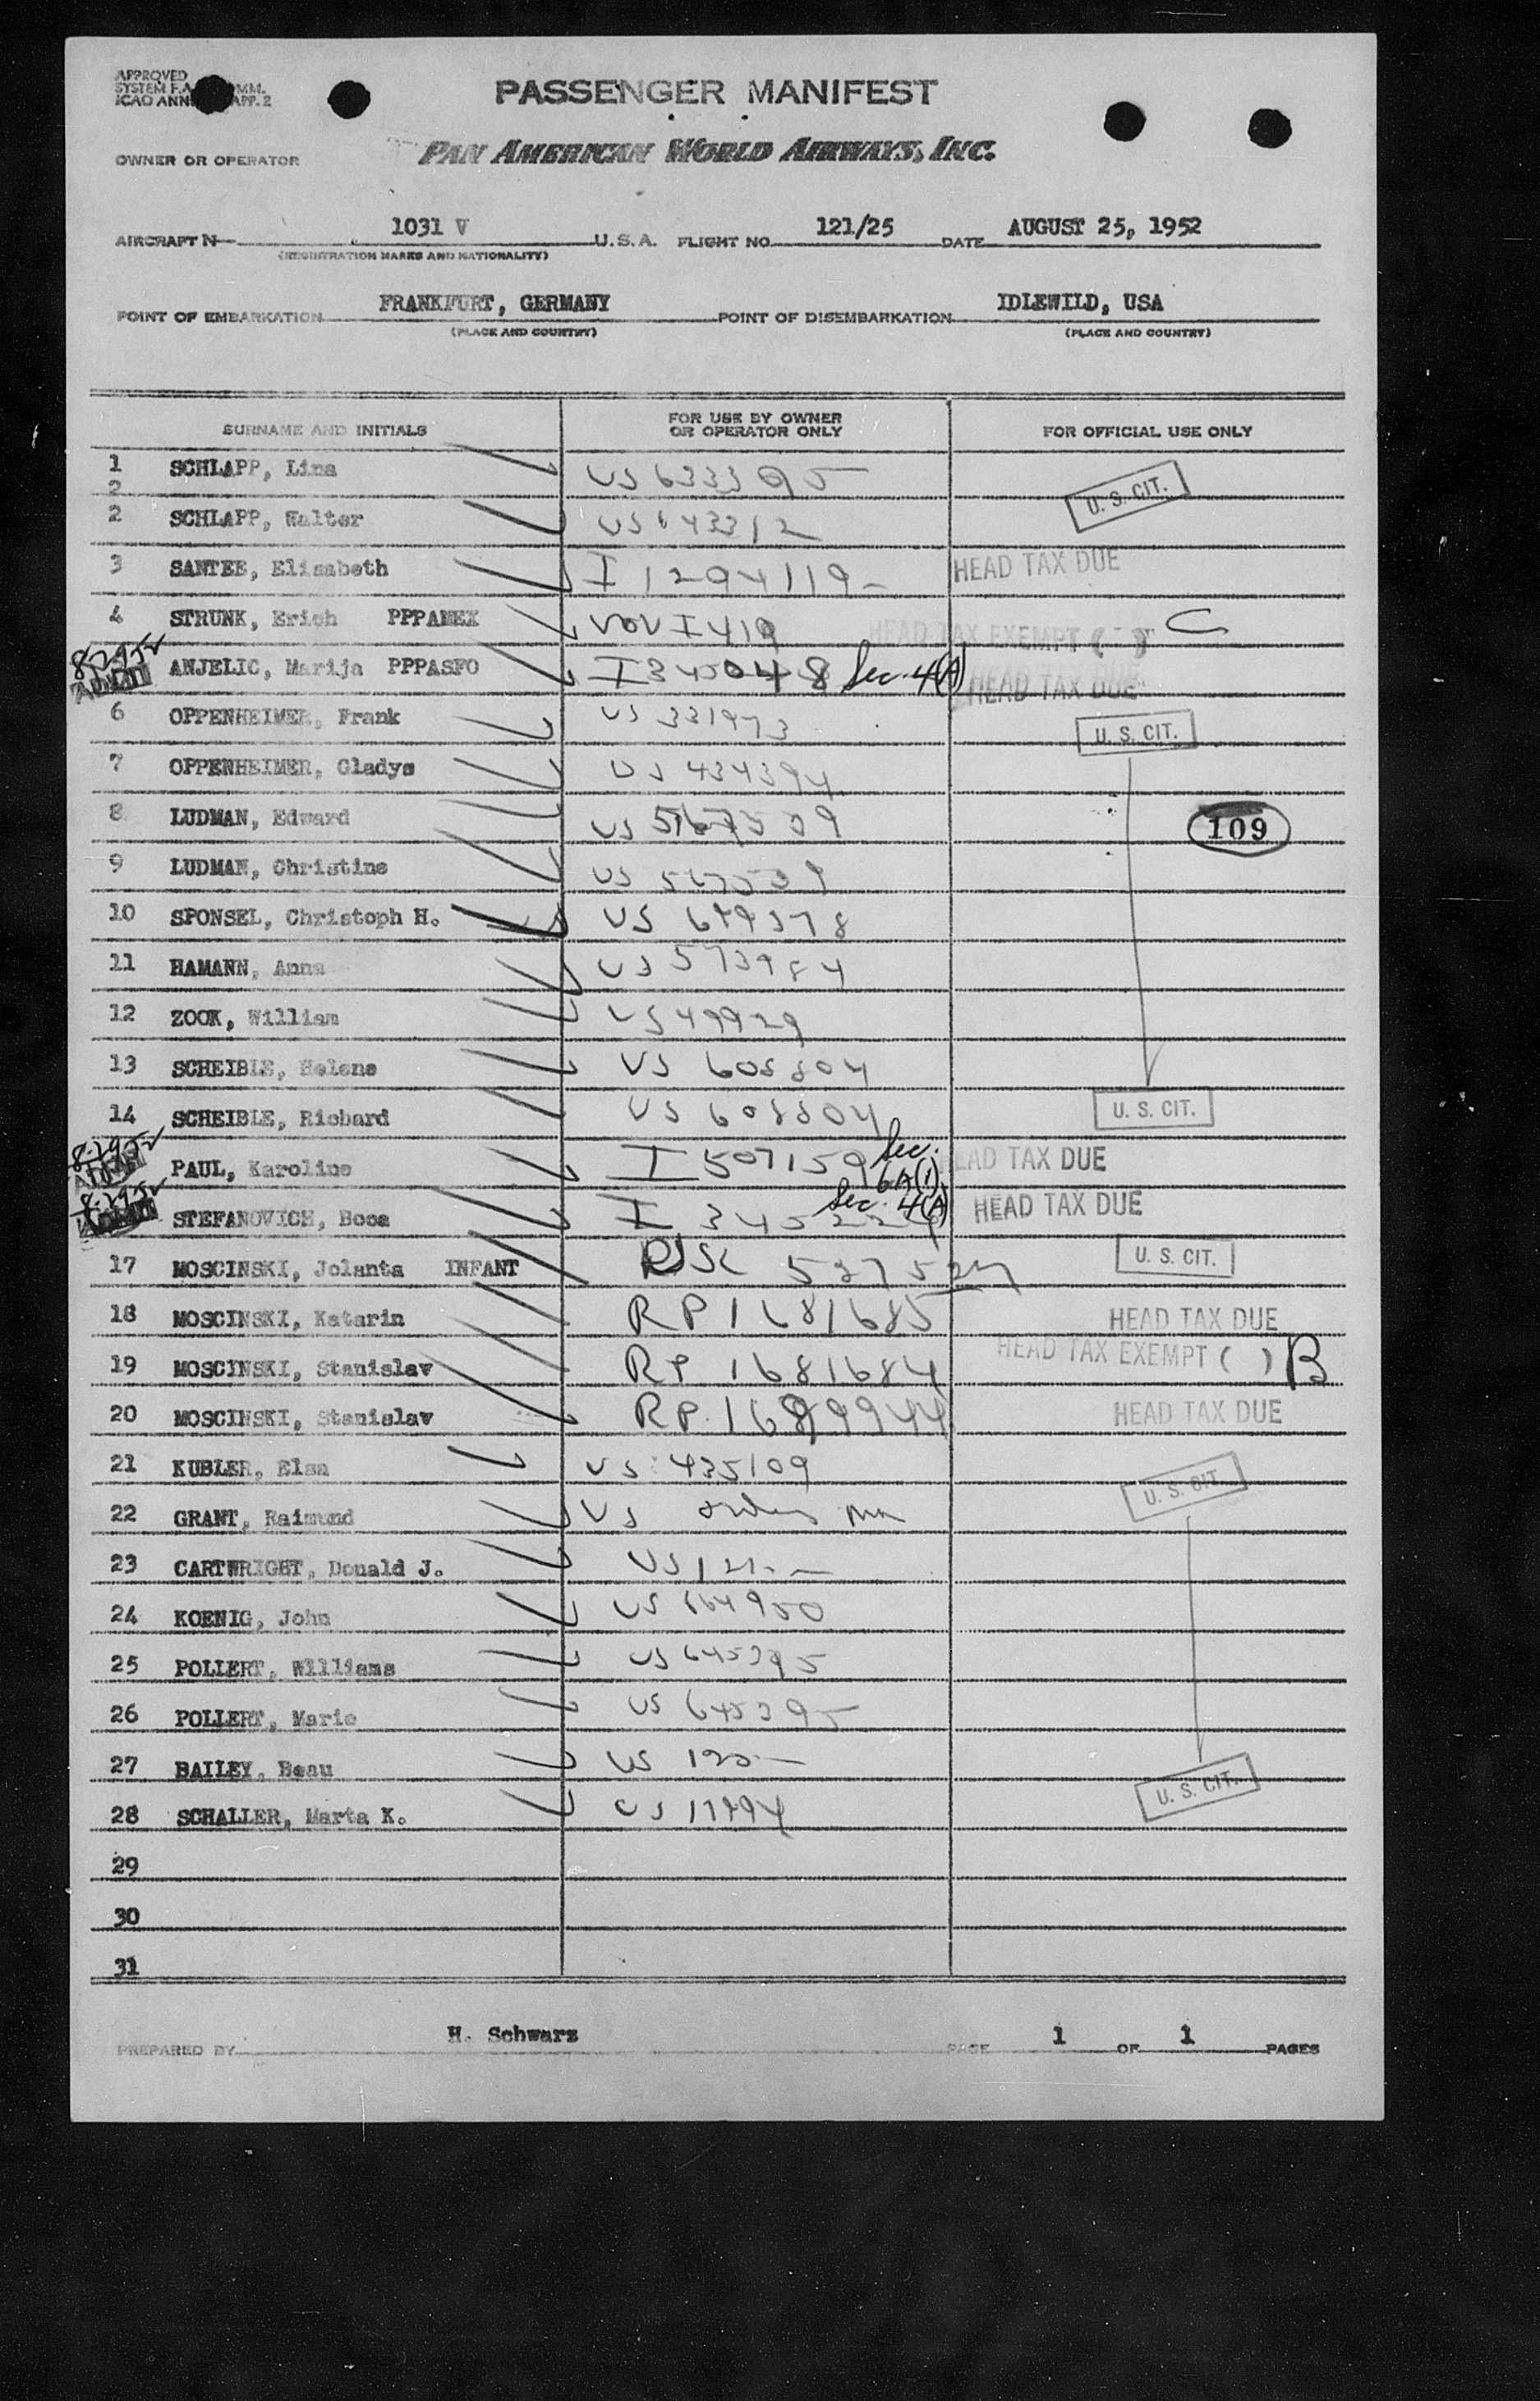 APPROVED
SYSTEM F.A. MM.
ICAO ANN APP. 2
PASSENGER MANIFEST
OWNER OR OPERATOR PAN AMERICAN WORLD AIRWAYS, INC.
AIRCRAFT N 1031 V U.S.A. FLIGHT NO. 121/25 DATE AUGUST 25, 1952
(REGISTRATION MARKS AND NATIONALITY)
POINT OF EMBARKATION FRANKFURT, GERMANY POINT OF DISEMBARKATION IDLEWILD, USA
(PLACE AND COUNTRY) (PLACE AND COUNTRY)
SURNAME AND INITIALS FOR USE BY OWNER OR OPERATOR ONLY FOR OFFICIAL USE ONLY
1 SCHLAPP, Lina US 633395
2
2 SCHLAPP, Walter US 643312 U. S. CIT.
3 SANTEE, Elisabeth I 1294119 HEAD TAX DUE
4 STRUNK, Erich PPPAMEX I 419 HEAD TAX EXEMPT ( ) C
8-29-52 ANJELIC, Marija PPPASFO I 345048 Sec. 4(A) HEAD TAX DUE
6 OPPENHEIMER, Frank US 331973 U. S. CIT.
7 OPPENHEIMER, Gladys US 434394
8 LUDMAN, Edward US 567539 109
9 LUDMAN, Christine US 567539
10 SPONSEL, Christoph H. US 679378
11 HAMANN, Anna US 573984
12 ZOOK, William US 49929
13 SCHEIBLE, Helene US 608804
14 SCHEIBLE, Richard US 608804 U. S. CIT.
8-29-52 PAUL, Karoline I 507159 Sec. 6A(1) HEAD TAX DUE
8-29-52 STEFANOVICH, Boca I Sec. 4(A) HEAD TAX DUE
17 MOSCINSKI, Jolanta INFANT U. S. CIT.
18 MOSCINSKI, Katarin RP 1681685 HEAD TAX DUE
19 MOSCINSKI, Stanislav RP 1681684 HEAD TAX EXEMPT ( ) B
20 MOSCINSKI, Stanislav RP. HEAD TAX DUE
21 KUBLER, Elsa US 435109 U. S. CIT.
22 GRANT, Raimund US
23 CARTWRIGHT, Donald J. US
24 KOENIG, John US 664950
25 POLLERT, Williams US 645395
26 POLLERT, Marie US 645395
27 BAILEY, Beau US
28 SCHALLER, Marta K. US 17794 U. S. CIT.
29
30
31
PREPARED BY H. Schwarz PAGE 1 OF 1 PAGES